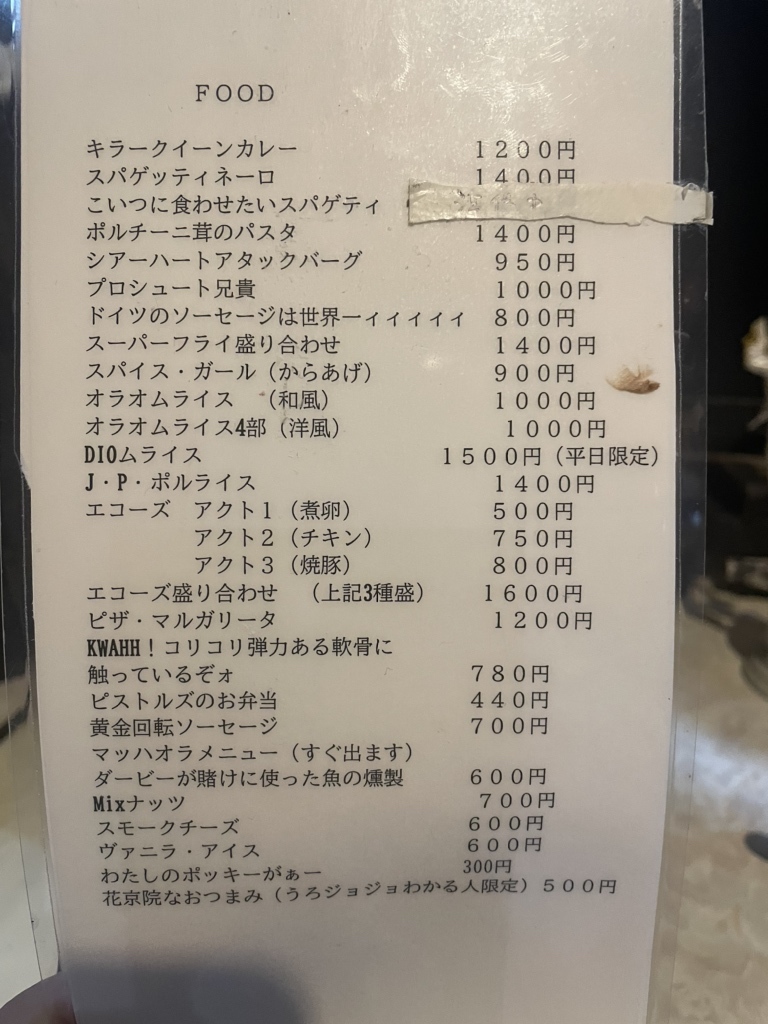 FOOD
キラークイーンカレー 1200円
スパゲッティネーロ 1400円
こいつに食わせたいスパゲティ
ポルチーニ茸のパスタ 1400円
シアーハートアタックバーグ 950円
プロシュート兄貴 1000円
ドイツのソーセージは世界一ィィィィィ 800円
スーパーフライ盛り合わせ 1400円
スパイス・ガール（からあげ） 900円
オラオムライス （和風） 1000円
オラオムライス4部（洋風） 1000円
DIOムライス 1500円（平日限定）
J・P・ポルライス 1400円
エコーズ アクト1（煮卵） 500円
アクト2（チキン） 750円
アクト3（焼豚） 800円
エコーズ盛り合わせ （上記3種盛） 1600円
ピザ・マルガリータ 1200円
KWAHH！コリコリ弾力ある軟骨に
触っているぞォ 780円
ピストルズのお弁当 440円
黄金回転ソーセージ 700円
マッハオラメニュー（すぐ出ます）
ダービーが賭けに使った魚の燻製 600円
Mixナッツ 700円
スモークチーズ 600円
ヴァニラ・アイス 600円
わたしのポッキーがぁー 300円
花京院なおつまみ（うろジョジョわかる人限定）500円